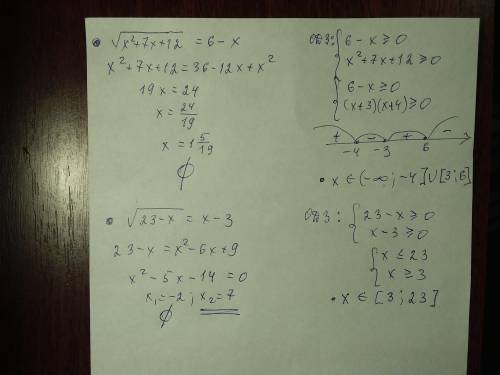 • √(x²+7x+12) = 6-x
x²+7x+12=36-12x+x²
19x=24
x=24/19
x=1 5/19
∅
ОДЗ: { 6-x≥0
x²+7x+12≥0
{ 6-x≥0
(x+3)(x+4)≥0
+ - + -
-4 -3 6 x
• x∈(-∞;-4]∪[3;6]
• √(23-x) = x-3
23-x=x²-6x+9
x²-5x-14=0
x₁=-2; x₂=7
∅
ОДЗ: { 23-x≥0
x-3≥0
{ x≤23
x≥3
• x∈[3;23]